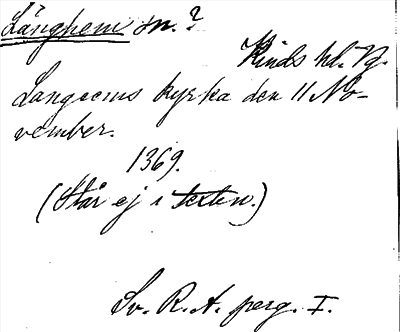 Länghem sn.?
Kinds hd. Vg.
Langeems kyrka den 11 No-
vember.
1369.
(Står ej i texten.)
Sv. R. A. perg. I.